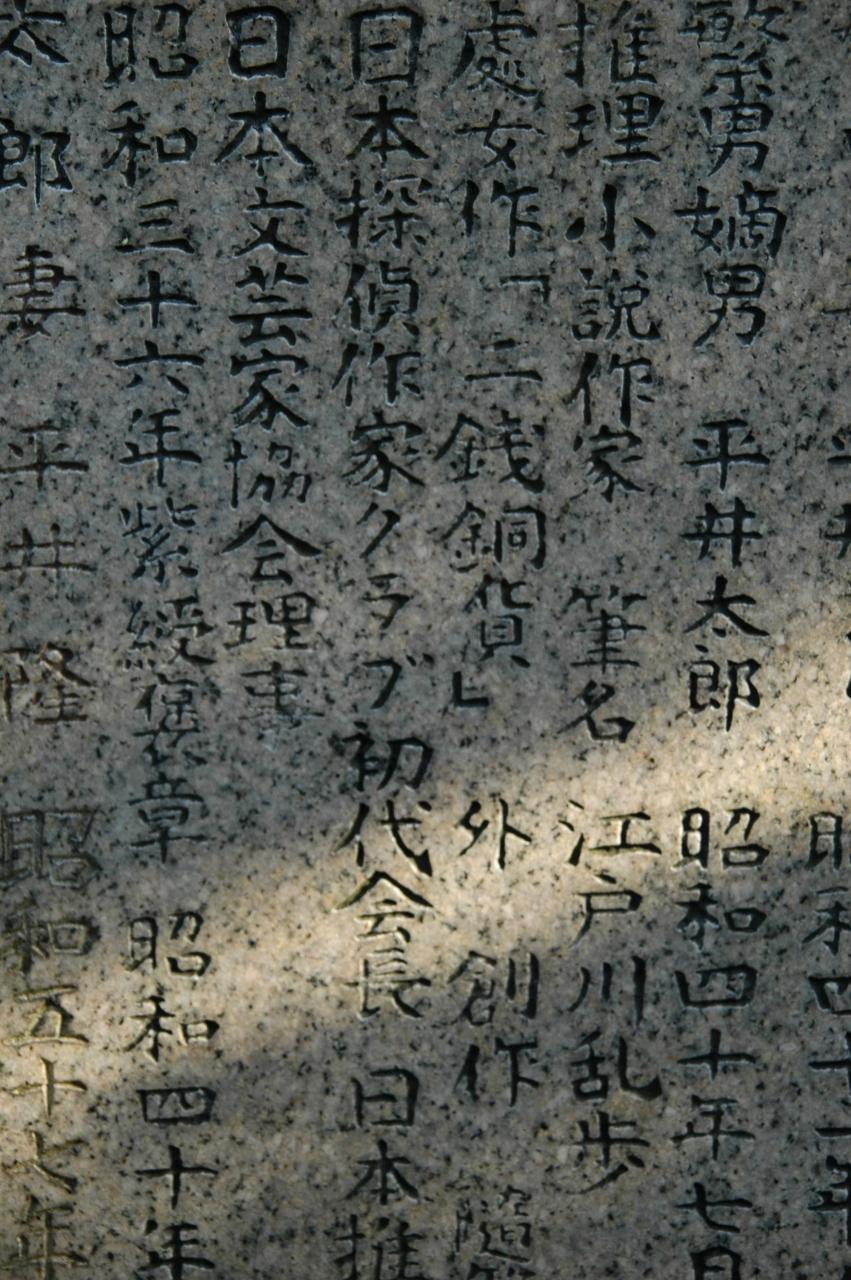 平井 昭和四十一年
繁男嫡男 平井太郎 昭和四十年七月
推理小説作家 筆名 江戸川乱歩
處女作「二銭銅貨」外 創作 隨
日本探偵作家クラブ初代会長 日本推
日本文芸家協会理事
昭和三十六年紫綬褒章 昭和四十年
太郎妻 平井隆 昭和五十七年